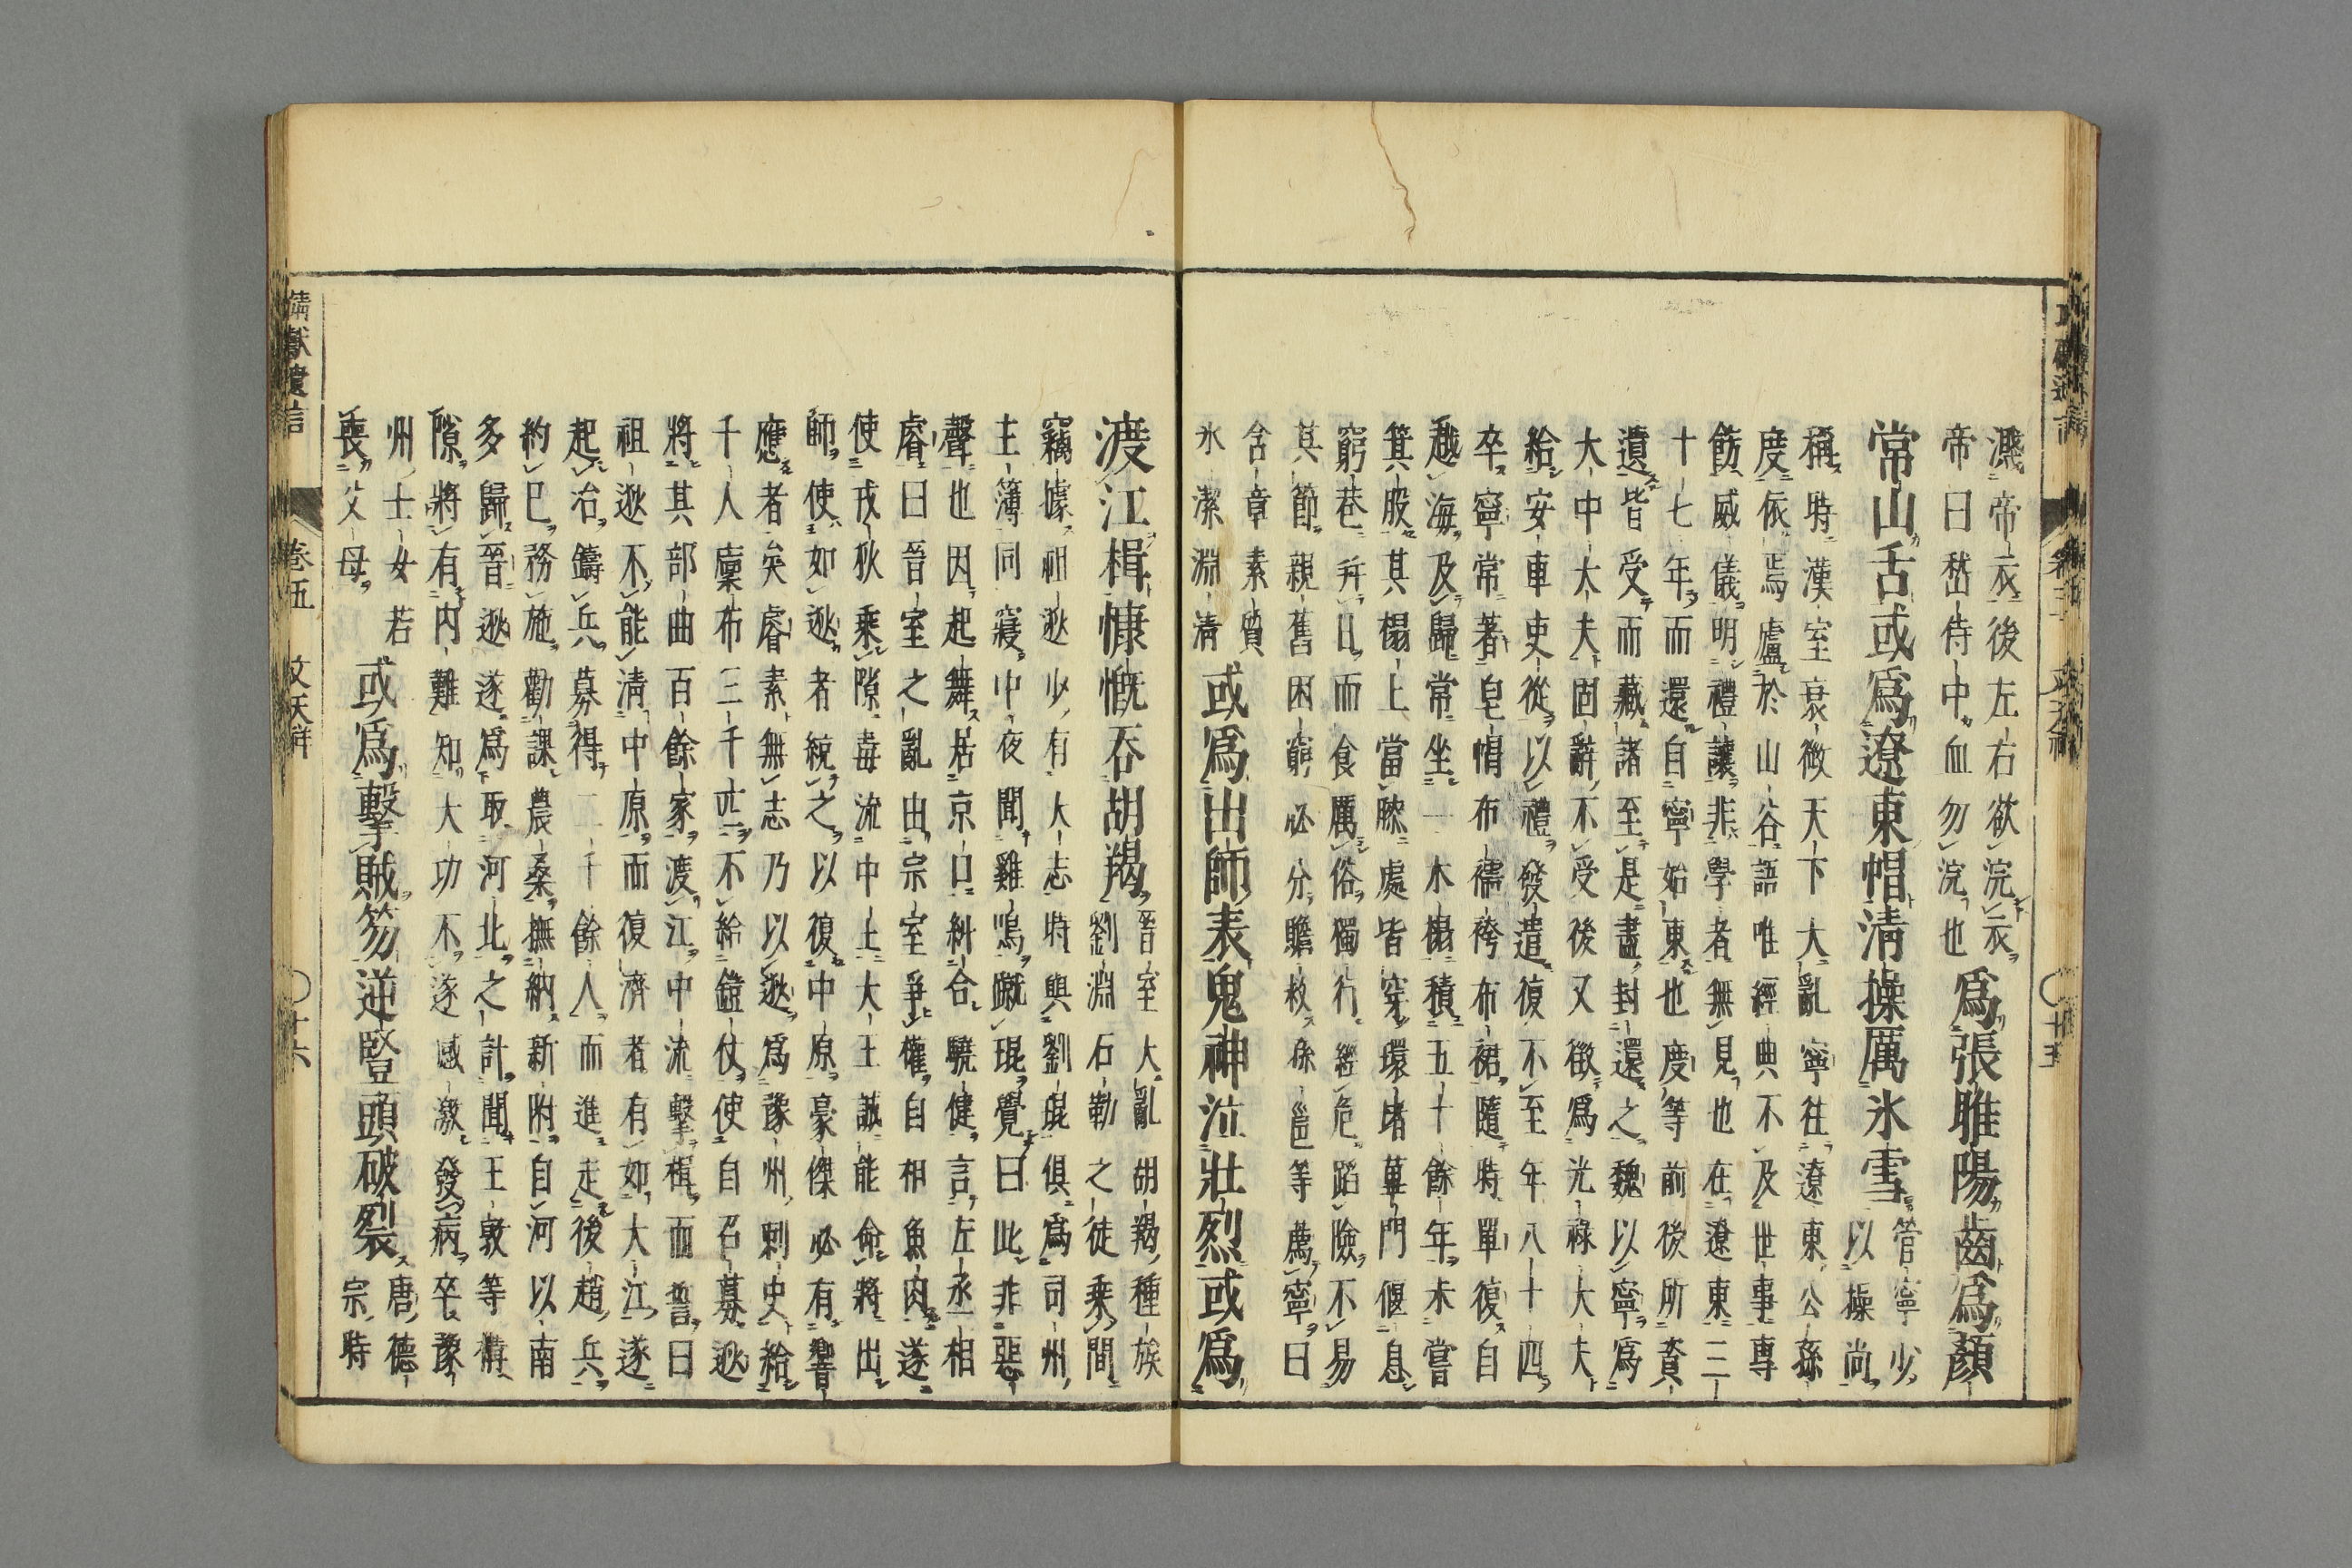 濺帝衣後左右欲浣衣
帝曰嵇侍中血勿浣也
爲張睢陽齒爲顏
常山舌或爲遼東帽清操厲氷雪
管寧少
以操尚
稱時漢室衰微天下大亂寧往遼東公孫
度依焉廬於山谷語唯經典不及世事專
飭威儀明禮讓非學者無見也在遼東三
十七年而還自寧始東也度等前後所資
遺皆受而藏諸至是盡封還之魏以寧爲
大中大夫固辭不受後又徵爲光祿大夫
給安車吏從以禮發遣復不至年八十四
卒寧常著皂帽布襦袴布裙隨時單復自
越海及歸常坐一木榻積五十餘年未嘗
箕股其榻上當膝處皆穿環堵蓽門偃息
窮巷并日而食厲俗獨行經危蹈險不易
其節親舊困窮必分贍救孫邕等薦寧曰
含章素質
氷潔淵清
或爲出師表鬼神泣壯烈或爲
渡江楫慷慨吞胡羯
晉室大亂胡羯種族
劉淵石勒之徒乘間
竊據祖逖少有大志時與劉琨俱爲司州
主簿同寢中夜聞雞鳴蹴琨覺曰此非惡
聲也因起舞居京口糾合驍健言左丞相
睿曰晉室之亂由宗室爭權自相魚肉遂
使戎狄乘隙毒流中土大王誠能命將出
師使如逖者統之以復中原豪傑必有響
應者矣睿素無志乃以逖爲豫州刺史給
千人廩布三千疋不給鎧仗使自召募逖
將其部曲百餘家渡江中流擊楫而誓曰
祖逖不能清中原而復濟者有如大江遂
起冶鑄兵募得二千餘人而進走後趙兵
約己務施勸課農桑撫納新附自河以南
多歸晉逖遂爲取河北之計聞王敦等構
隙將有內難知大功不遂感激發病卒豫
州士女若
喪父母
或爲擊賊笏逆豎頭破裂
唐德
宗時
靖獻遺言 卷五 文天祥 〇十六